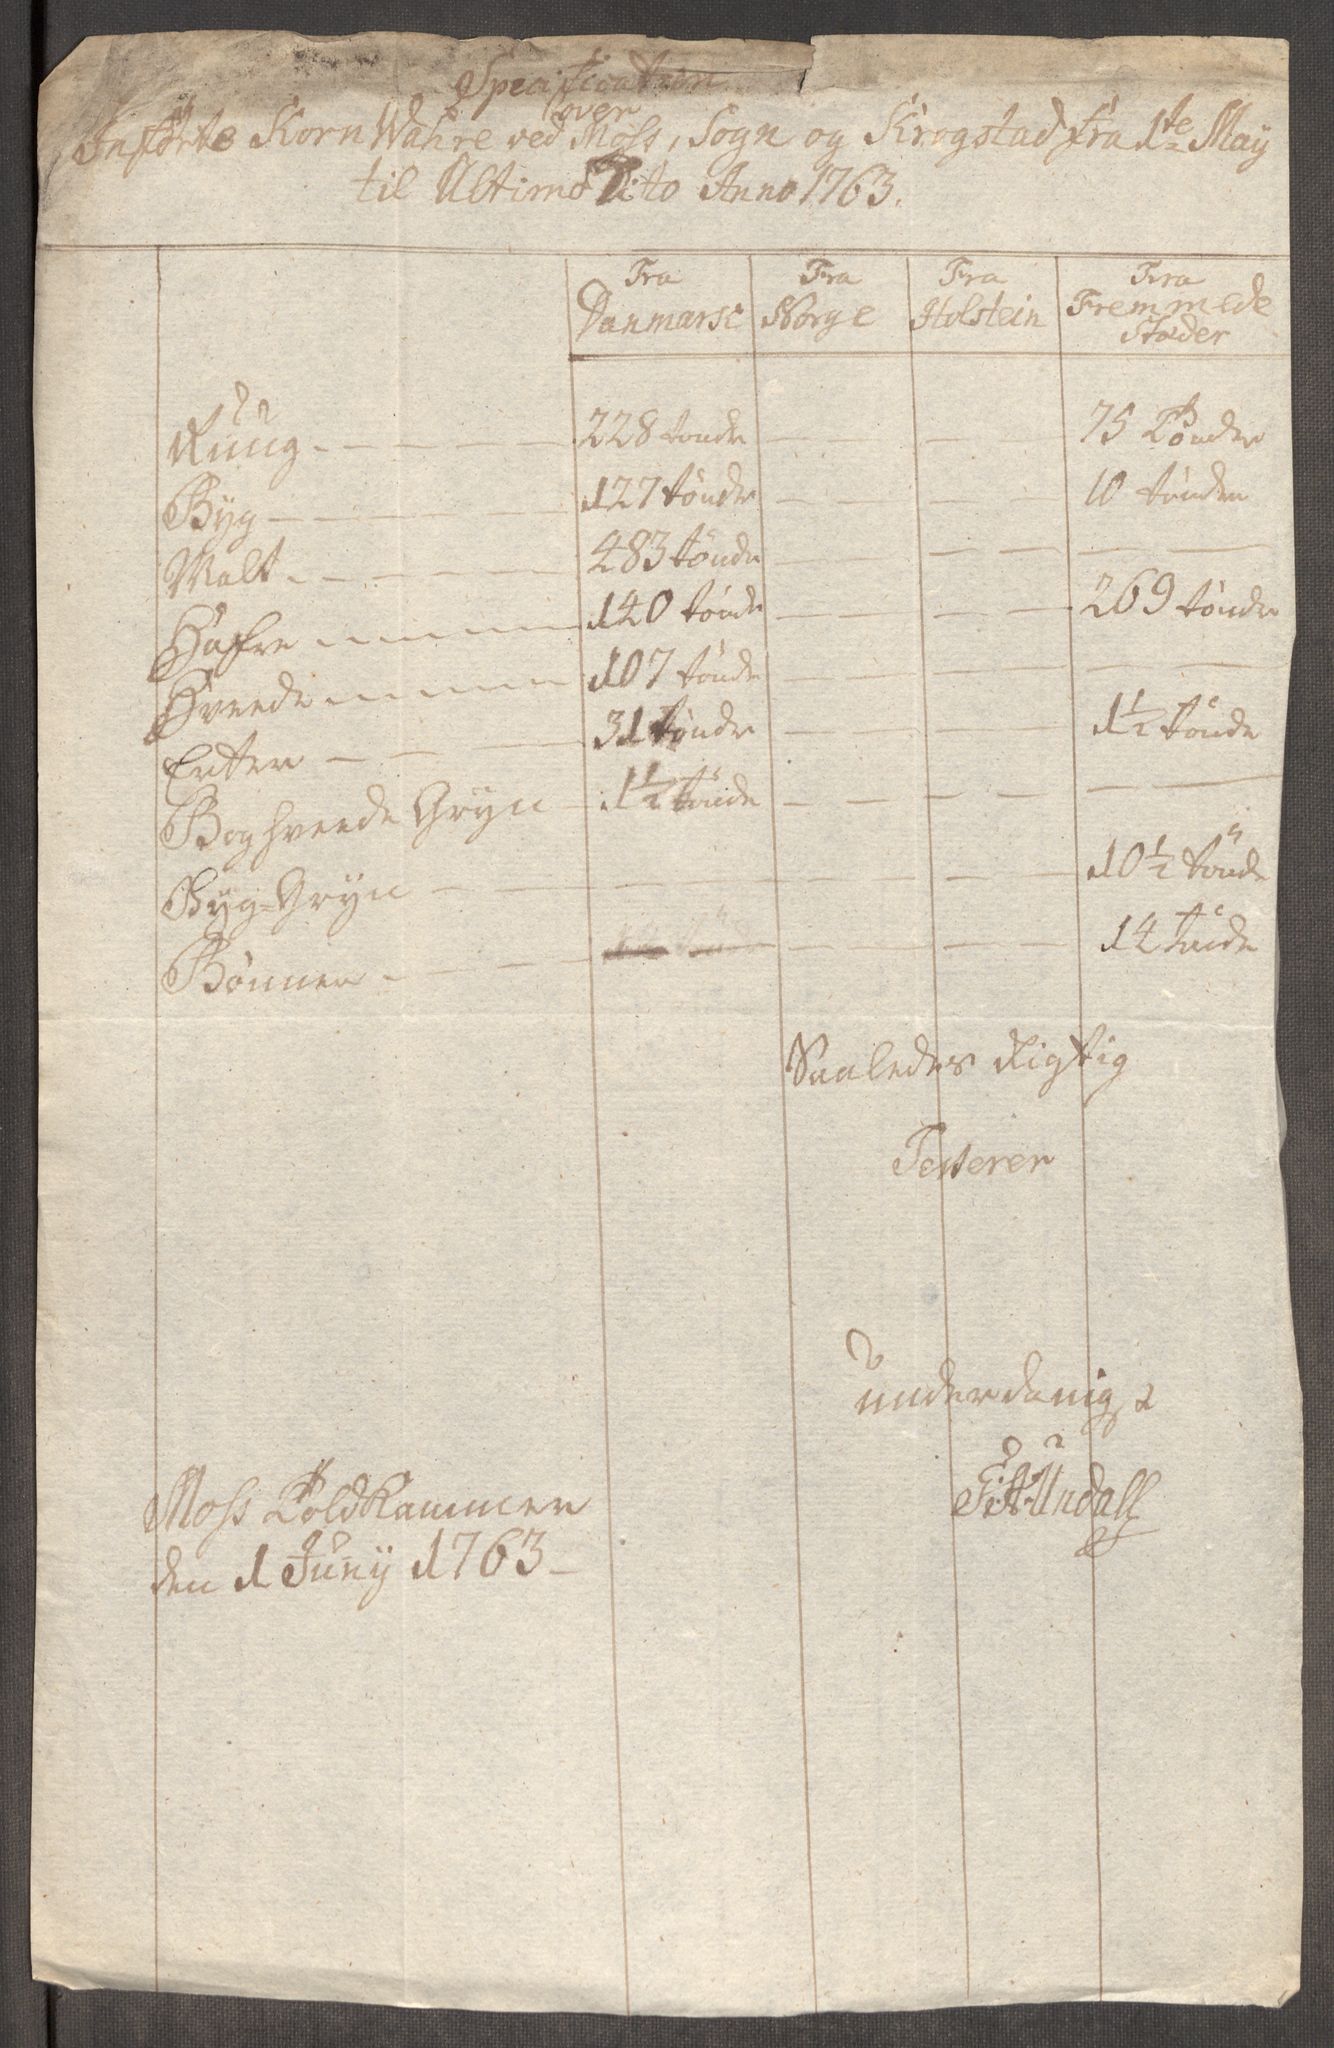 Specification
over
Inførte Korn Wahre ved Moss, Sogn og Krogstad fra 1te May
til Ultimo Dito Anno 1763.
Fra Danmarsc | Fra Norge | Fra Holstein | Fra Fremmede Stæder
Rüüg - 228 tønder - - 75 Tønder
Byg - 127 tønder - - 10 tønder
Malt - 483 tønder - - -
Hafre - 140 tønde - - 269 tønder
Hveede - 107 tønde - - -
Erter - 31 tønder - - 1½ tønde
Boghveede Gryn - 1½ tønde - - -
Byg-Gryn - - - - 10½ tønde
Bønner - - - 14 tønde
Saaledes Rigtig
Testerer
underdanigst
Moss Toldkammer
den 1 Juny 1763
Undall